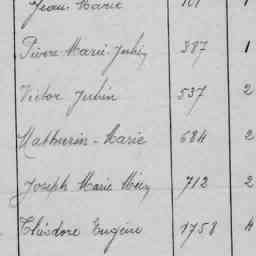 Jean Marie 101 1
Pierre Marie Julien 387 1
Victor Julien 537 2
Mathurin-Marie 684 2
Joseph Marie 712 2
Théodore Eugène 1758 4